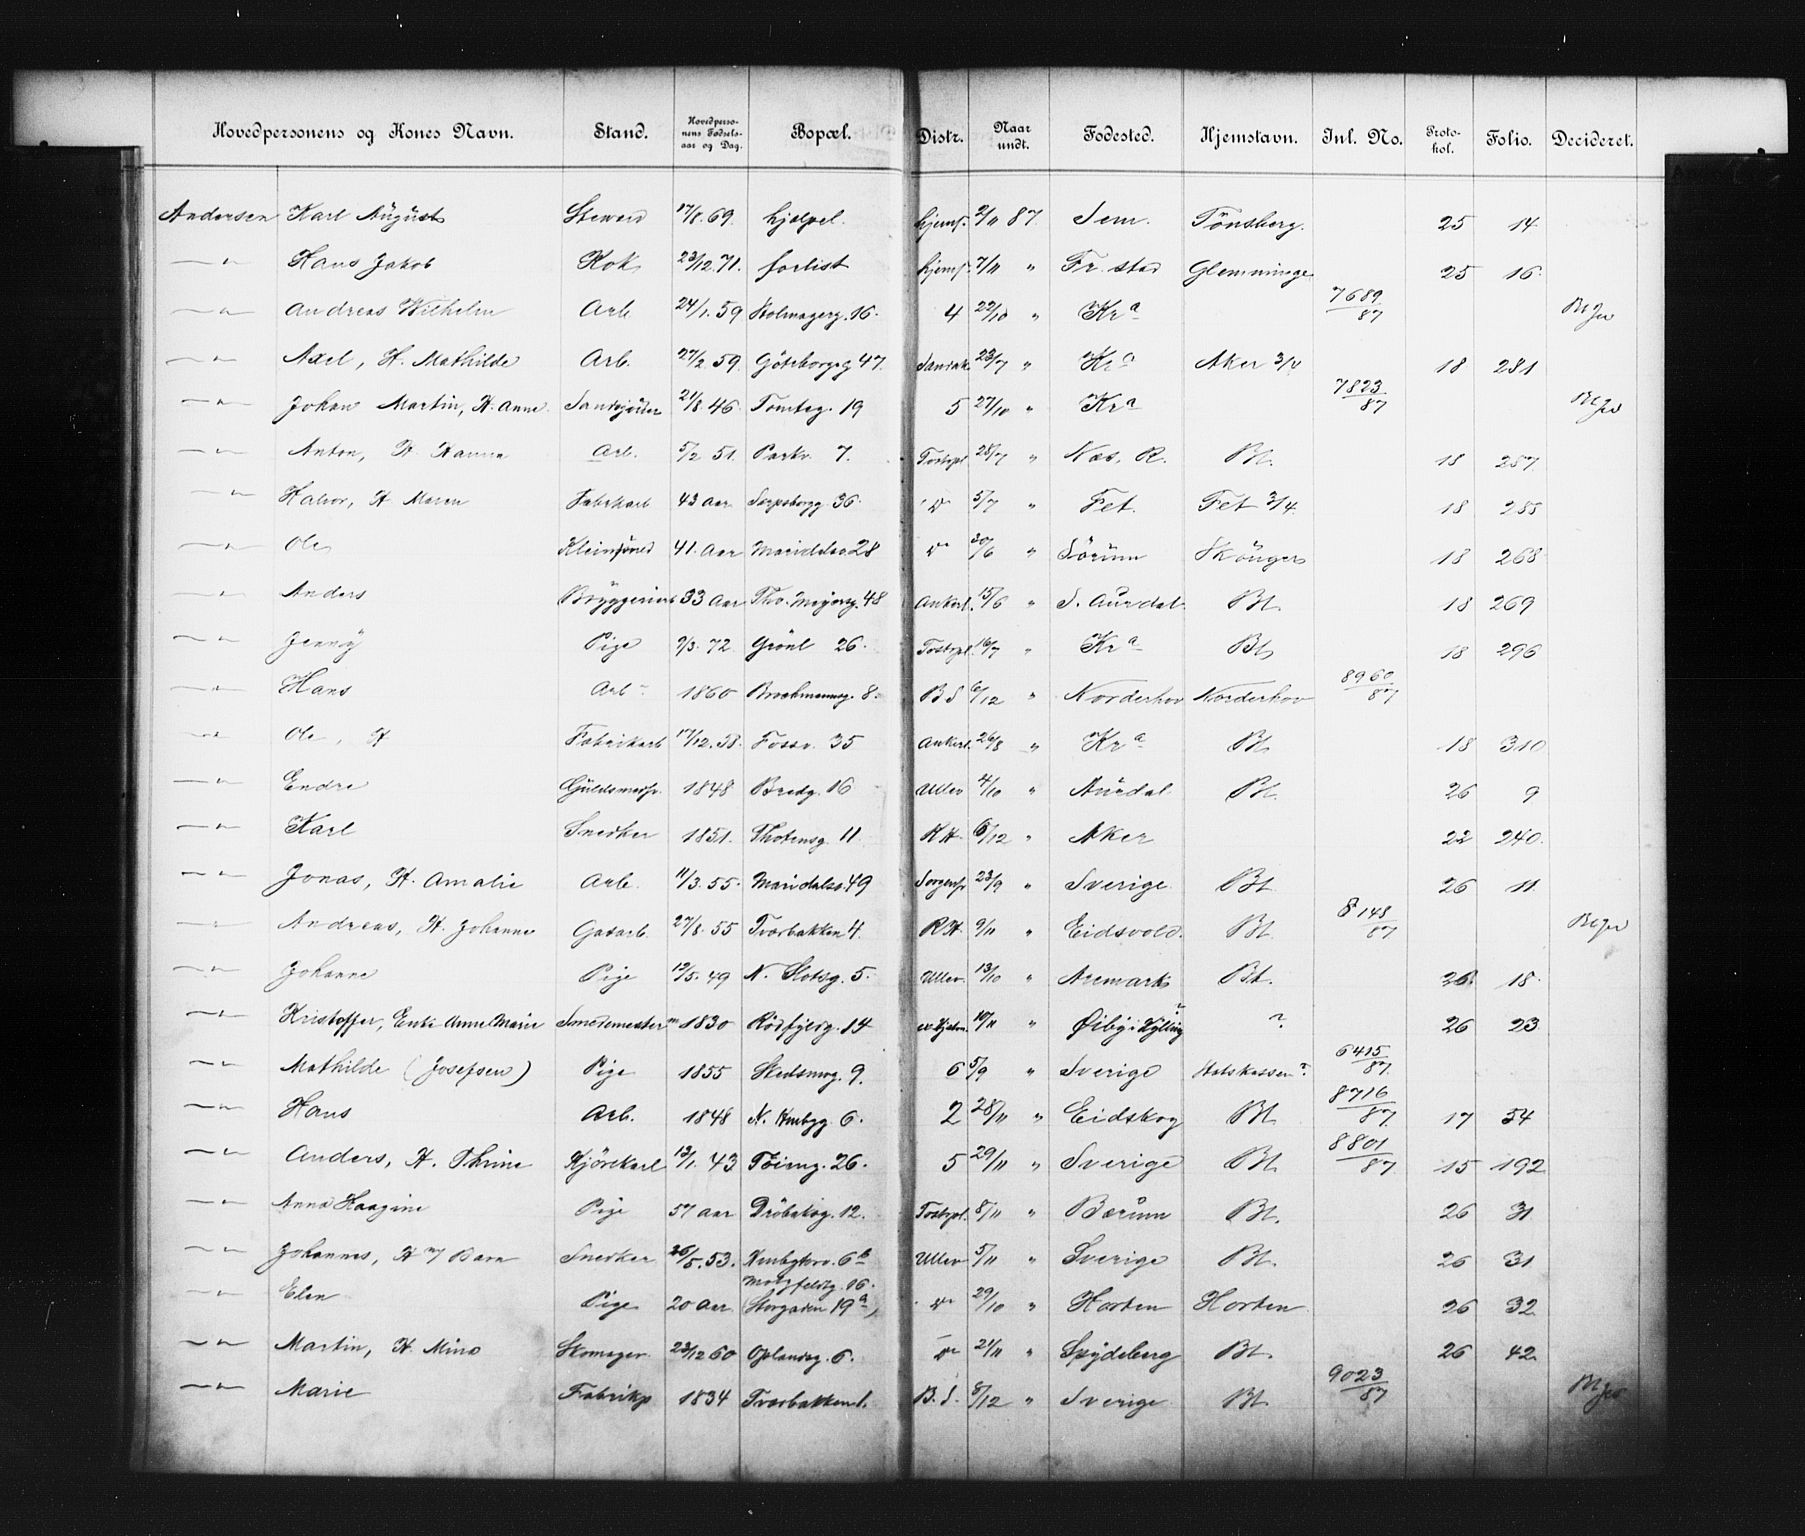 Hovedpersonens og Kones Navn. Stand. Hovedperso-nens Fødsels-aar og Dag. Bopæl. Distr. Naar undt. Fødested. Hjemstavn. Inl. No. Proto-kol. Folio. Decideret.
Andersen Karl August Steward 17/8. 69. hjælpel. hjemf. 2/11 87. Sem. Tönsberg. 25 14
—"— Hans Jakob Kok 23/12. 71. forlist hjemf. 7/11 " Fr. stad Glemminge 25 16.
—"— Andreas Wilhelm Arb. 24/1. 59 16. 4 22/10 " Kr a 7689/87
—"— Axel, H. Mathilde Arb. 27/2. 59. Göteborgsg 47. 23/7 " Kr a Aker 3/4 18 281
—"— Johan Martin, H. Anne. 21/8. 46. Tomteg. 19 5 27/10 " Kr a 7823/87
—"— Anton, H. Hanna Arb. 5/2 51. Parkv. 7. Tostrpl. 28/7 " Næs, R. Bt. 18 287
—"— Halvor, H. Maren Fabrikarb 43 Aar Sarpsborgg. 36. D 5/7 " Fet. Fet 3/4. 18 285
—"— Ole 41. Aar Maridalsv. 28 D 30/6 " Sörum 18 268
—"— Anders Bryggeriarb 33 Aar Thv. Meyersg. 48 Ankerl. 15/6 " S. Aurdal. Bt. 18 269
—"— Jenny Pige 9/3. 72. Grönl 26. Tostrpl. 16/7 " Kr a Bt. 18 296
—"— Hans Arb 1860 Brochmannsg. 8. B S 6/12 " Norderhov Norderhov 8960/87
—"— Ole, H Fabrikarb 17/12. 38. Fossv. 35 Ankerl. 26/8 " Kr a Bt. 18 310
—"— Endre Guldsmedsv. 1848 Bredg. 16 Ullev 4/10 " Aurdal Bt. 26 9
—"— Karl Snedker 1851. Thotensg. 11. R H. 6/12 " Aker 22 240.
—"— Jonas, H. Amalie Arb. 11/3. 55. Maridalsv. 49 Sorgenfr 23/9 " Sverige. Bt. 26 11.
—"— Andreas, H. Johanne Gadarb. 27/8. 55 Tværbakken 4. R H. 9/11 " Eidsvold. Bt. 8148/87
—"— Johanne Pige 12/5. 49 N. Slotsg. 5. Ullev. 13/10 " Aremark Bt. 26. 18.
—"— Kristoffer, Enke Anne Marie Smedemester 1830 Rödfyldg. 14 10/11 " Öiby i Kylling ? ? 26 23
—"— Mathilde (Josefsen) Pige 1855 Skedsmog. 9. 6 5/9 " Sverige Statskassen ? 6415/87
—"— Hans Arb. 1848 N. Hmbgg. 6. 2 28/11 " Eidskog Bt. 8716/87 17 54
—"— Anders, H. Thrine Kjörekarl 13/1. 43 Töieng. 26. 5 29/11 " Sverige Bt. 8801/87 15 192
—"— Anna Haagine Pige 57 Aar Dröbaksg. 12. Tostrpl. 8/11 " Bærum Bt. 26 31
—"— Johannes, H m/ Barn Snedker 26/5. 53. 6 b Ullev 5/11 " Sverige Bt. 26 31
—"— Elen Pige 20 Aar Motzfeldtg. 16. (Storgaden 19 a) D 29/10 " Horten Horten 26 32
—"— Martin, H. Mina Skomager 23/12 60 Oplandsg. 6. D 21/11 " Spydeberg Bt. 26 42
—"— Marie Fabrikp 1834 Tværbakken 1. B. S. 8/12 " Sverige Bt. 9023/87